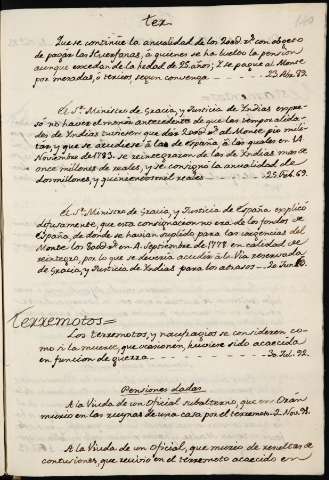 Ter
Que se continúe la anualidad de los 200d r.s con objeto
de pagar las Huerfanas, á quienes se ha suelto la pension
aunque excedan de la hedad de 25 años; y se pague al Monte
por mesadas, ó tercios segun convenga 23. Abr. 89.
El S.r Ministro de Gracia, y Justicia de Yndias expre-
só no haver el menor antecedente de que las tempo­ralida-
des de Yndias tuviesen que dár 200d r.s al Monte pio mili-
tar, y que se acudiese à las de España, à las quales en 14
Noviembre de 1783. se reintegraron de las de Yndias mas de
once millones de reales, y se consignó la anualidad de
dos millones, y quinientos mil reales 25. Feb.
El S.r Ministro de Gracia, y Justicia de España explicó
difusamente, que esta consignacion no era de los fondos de
España, de donde se havian suplido, para las urgencias del
Monte los 800d r.s en 4. Septiembre de 1778 en calidad de
reintegro, por lo que se deveria acudir à la Via reservada
de Gracia, y Justicia de Yndias para los atrasos 20 Jun.
Terremotos =
Los terremotos, y naufragios se consideren co-
mo si la muerte, que ocasionen, huviere sido acaecida
en funcion de guerra 30. Jul. 92.
Pensiones dadas
A la Viuda de un Oficial subalterno, que en Orán
murio en las ruynas de una casa por el terremoto 2. Nov. 91.
A la Viuda de un Oficial, que murio de resultas de
contusiones, que recivió en el terremoto acaecido en